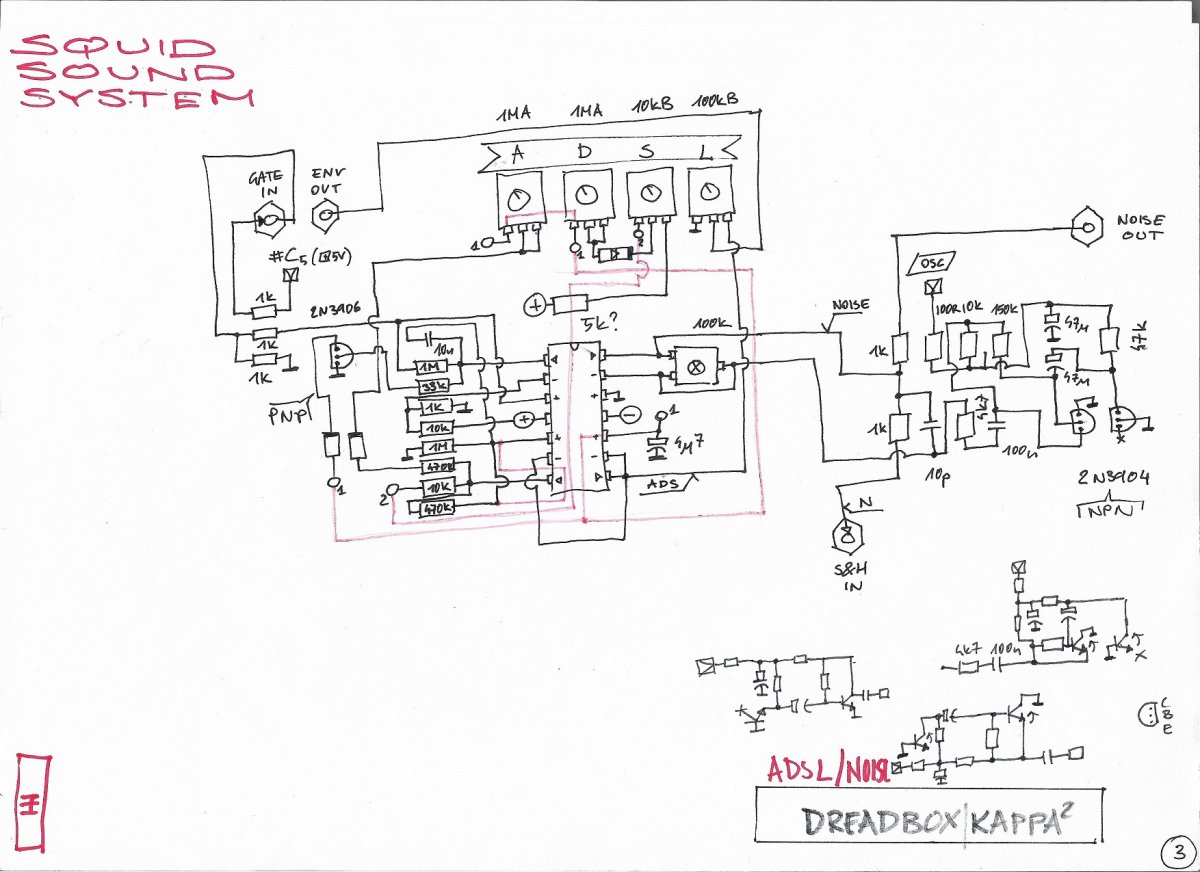 SQUID
SOUND
SYSTEM
1MA 1MA 10kB 100kB
A D S L
GATE
IN
ENV
OUT
1
1
2
NOISE
OUT
#C5 (5V)
OSC
1k
2N3906
1k
1k
5k?
100k
NOISE
100R 10k 150k
47µ
47µ
47k
10n
1M
33k
1k
10k
1M
470k
10k
470k
PNP
1
2
+
+
1
4µ7
ADS
1k
1k
4k7
10p
100n
2N3904
NPN
N
S&H
IN
4k7 100n
C
B
E
ADSL/NOISE
DREADBOX/KAPPA²
3